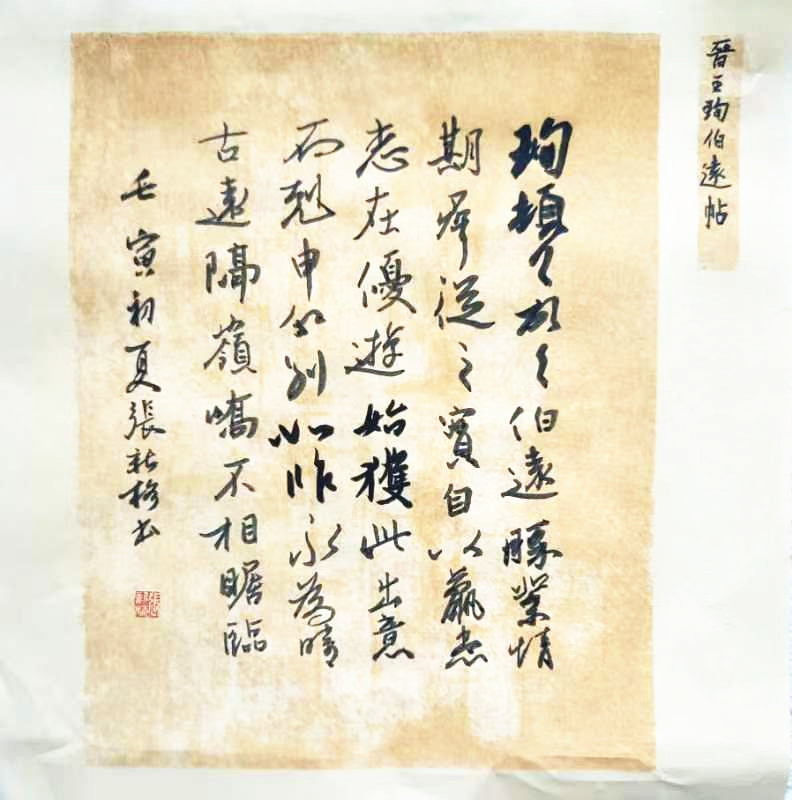 晉王珣伯遠帖
珣頓首頓首伯遠勝業情
期群從之寶自以羸患
志在優遊始獲此出意
不剋申分別如昨永為疇
古遠隔嶺嶠不相瞻臨
壬寅初夏張新書